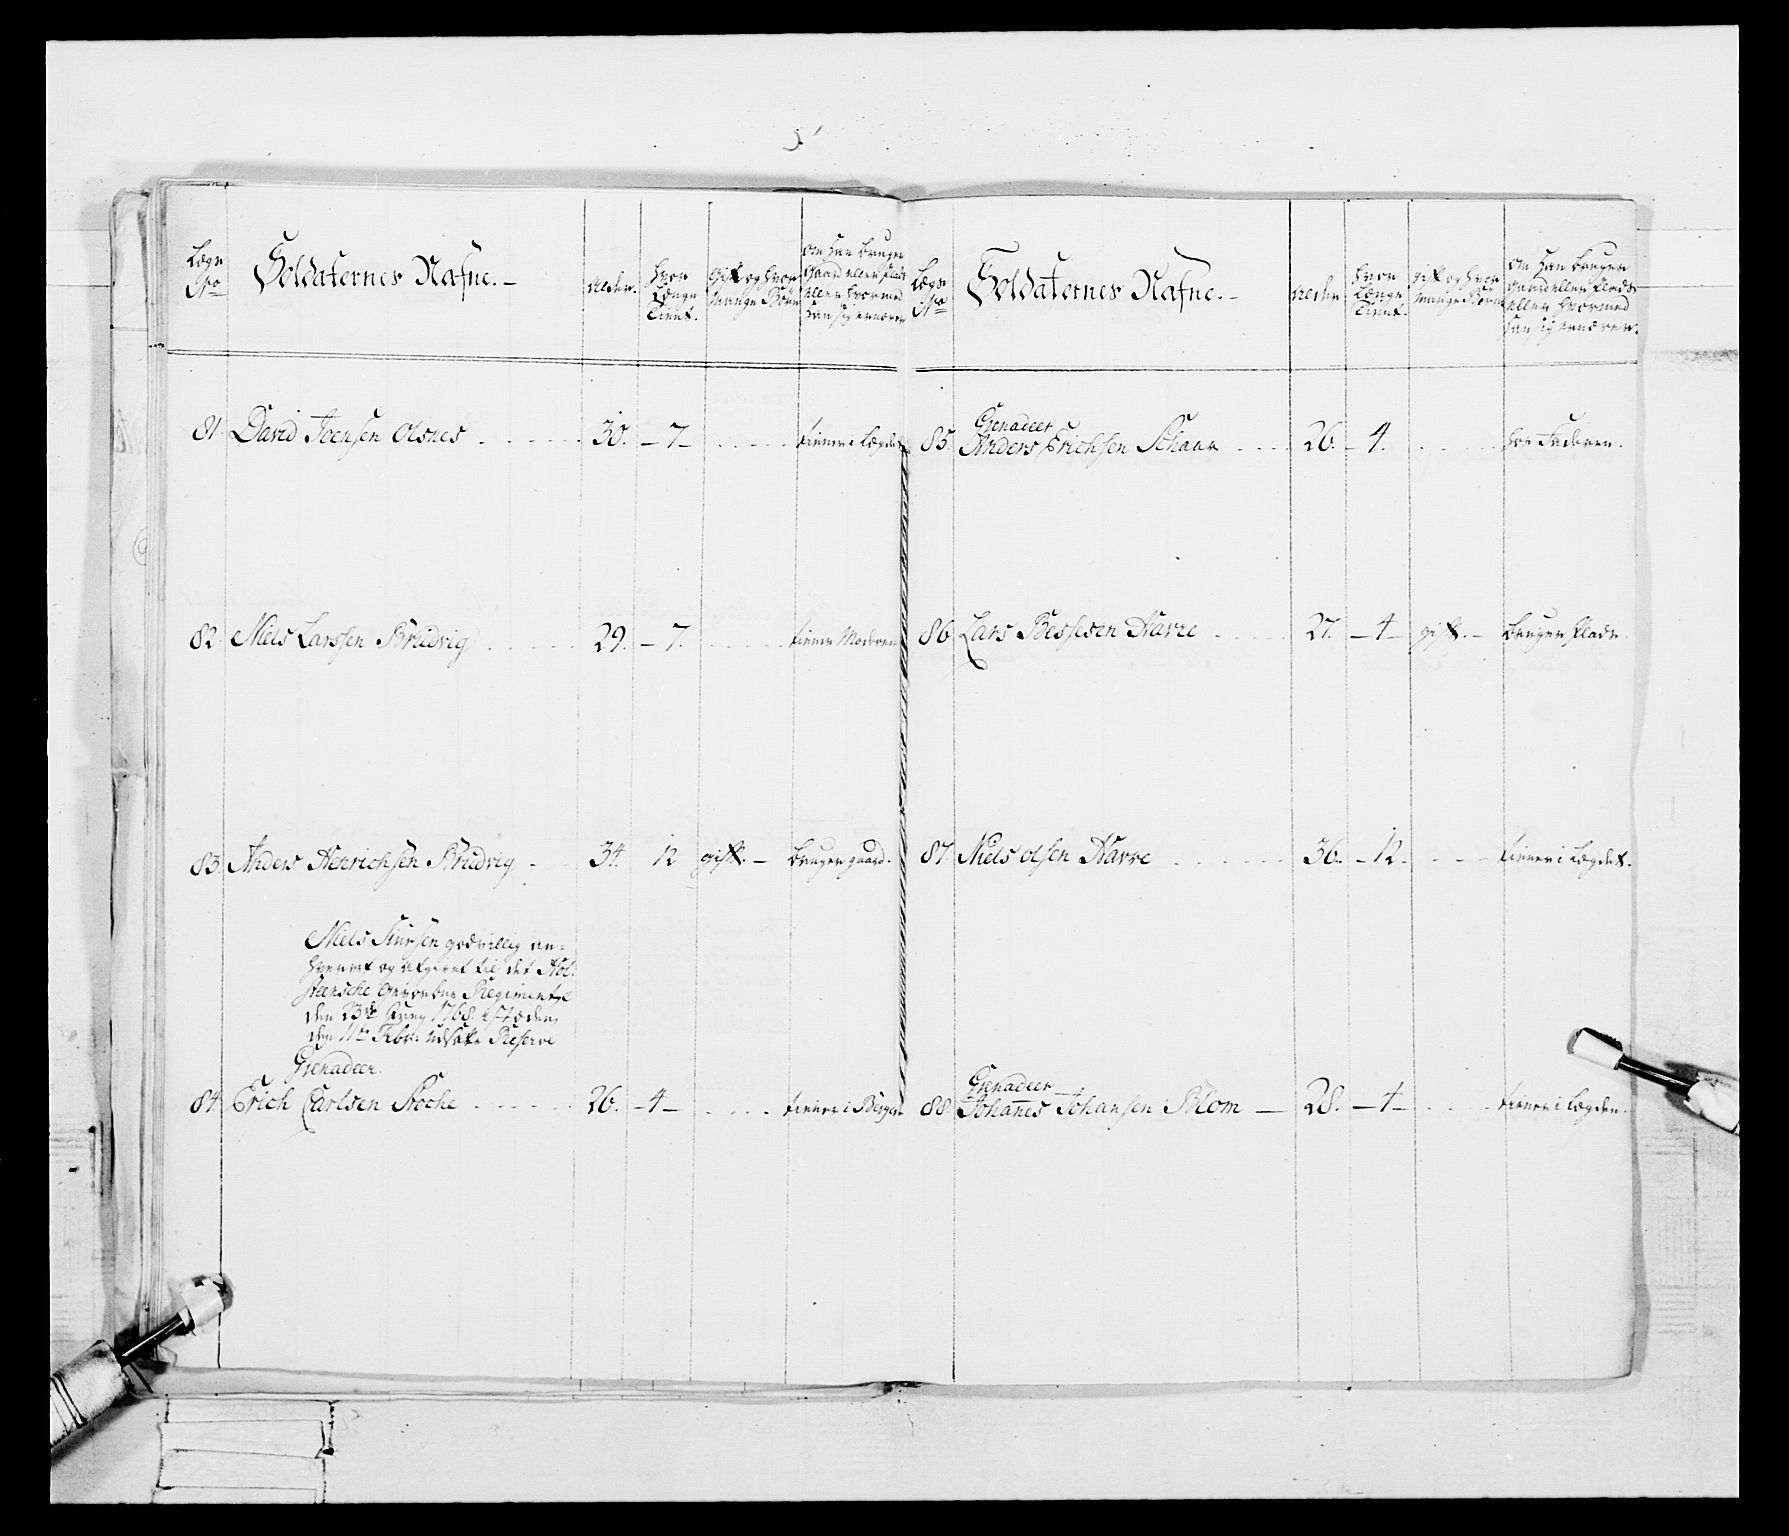 Lægs No
Soldaternes Nafne.
Alder.
Hvor Længe Tient.
Gift og hvor mange Børn
Om Han bruger Gaard eller Plads eller hvormed Han sig ernærer
81. David Joensen Olsnes 30. 7 tiener i Lægdet
82. Niels Larssen Brudvig 29. 7. tiener Moderen
83. Anders Henrichsen Brudvig 34. 12 gift. bruger gaard.
Niels Siursen godvillig an=
hvervet og afgivet til det Hol=
steensche Gevorbne Regimente
den 23de 1768. i Stæden
den 11te Febr: udsatte Reserve
Grenadeer.
84. Erich Carlsen Stoche 26. 4 tiener i Bergen
Lægs No
Soldaternes Nafne.
Alder
Hvor Længe Tient.
gift og hvor mange Børn
Om Han bruger Gaard eller Plads eller hvormed Han sig ernærer.
Grenadeer
85. Anders Erichsen Schaar 26. 4. hos Faderen.
86 Lars Bessesen Havre 27. 4 gift. bruger Plads.
87. Niels Olsen Havre 36. 12. tiener i Lægdet.
Grenadeer
88. Johannes Johansen Blom 28. 4 tiener i Lægden.